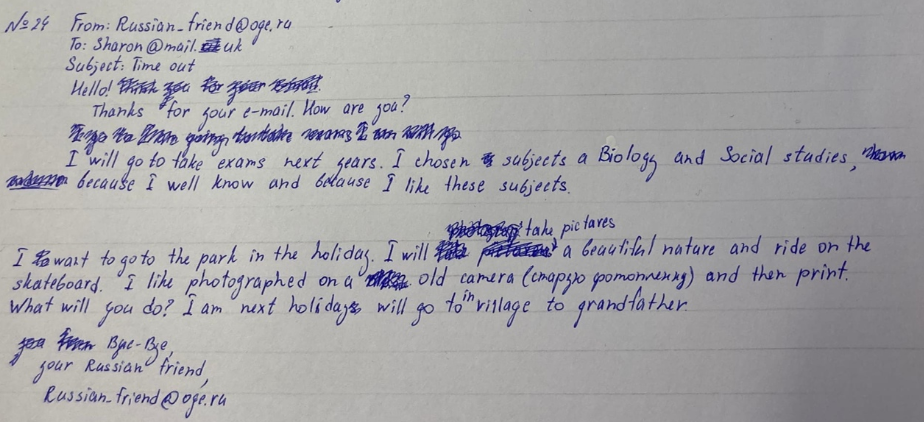 №24 From: Russian_friend@oge.ru
To: Sharon@mail.uk
Subject: Time out
Hello!
Thanks for your e-mail. How are you?
I will go to take exams next years. I chosen subjects a Biology and Social studies,
because I well know and because I like these subjects.
take pictares
I want to go to the park in the holiday. I will a beautiful nature and ride on the
skateboard. I like photographed on a old camera (старую фотопленку) and then print.
What will you do? I am next holidays will go to in village to grandfather.
Bye-Bye,
your Russian friend,
Russian_friend@oge.ru